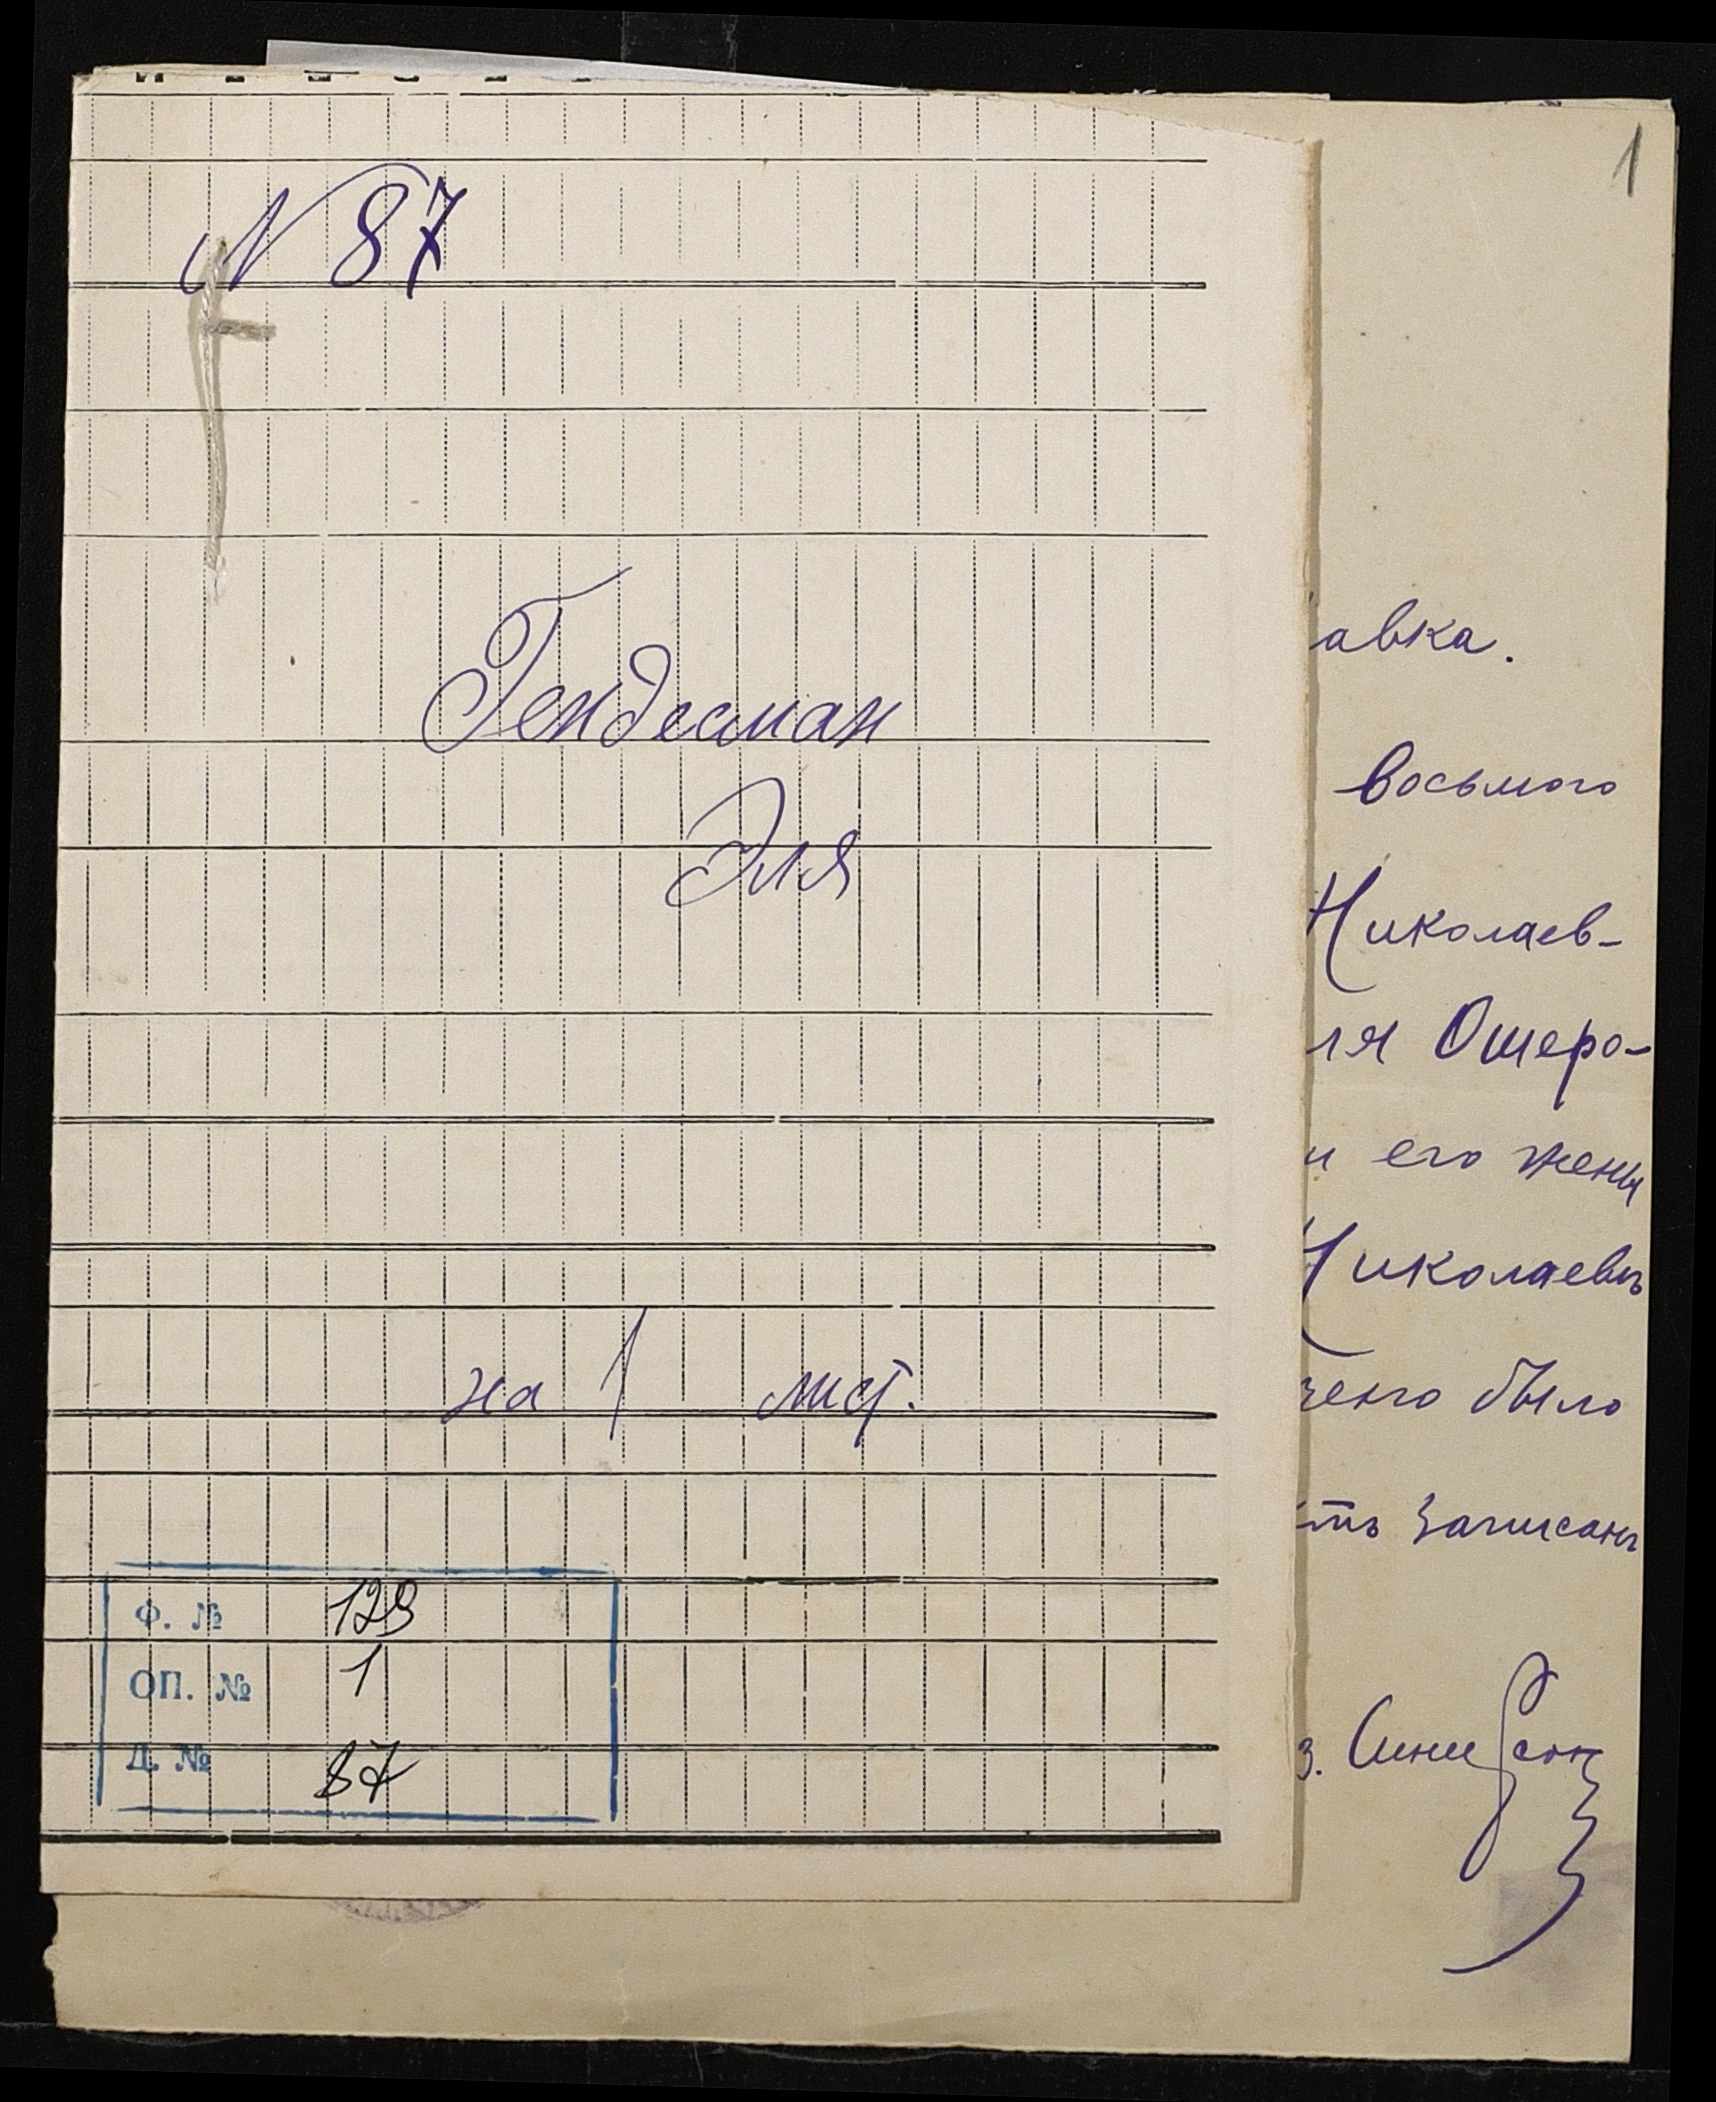 1
N 87
Гендесман
Эля
на 1 лист.
Ф. № 129
ОП. № 1
Д. № 87
авка.
восьмого
Николаев-
ля Ошеро-
и его жены
Николаевъ
чено было
ть записанъ